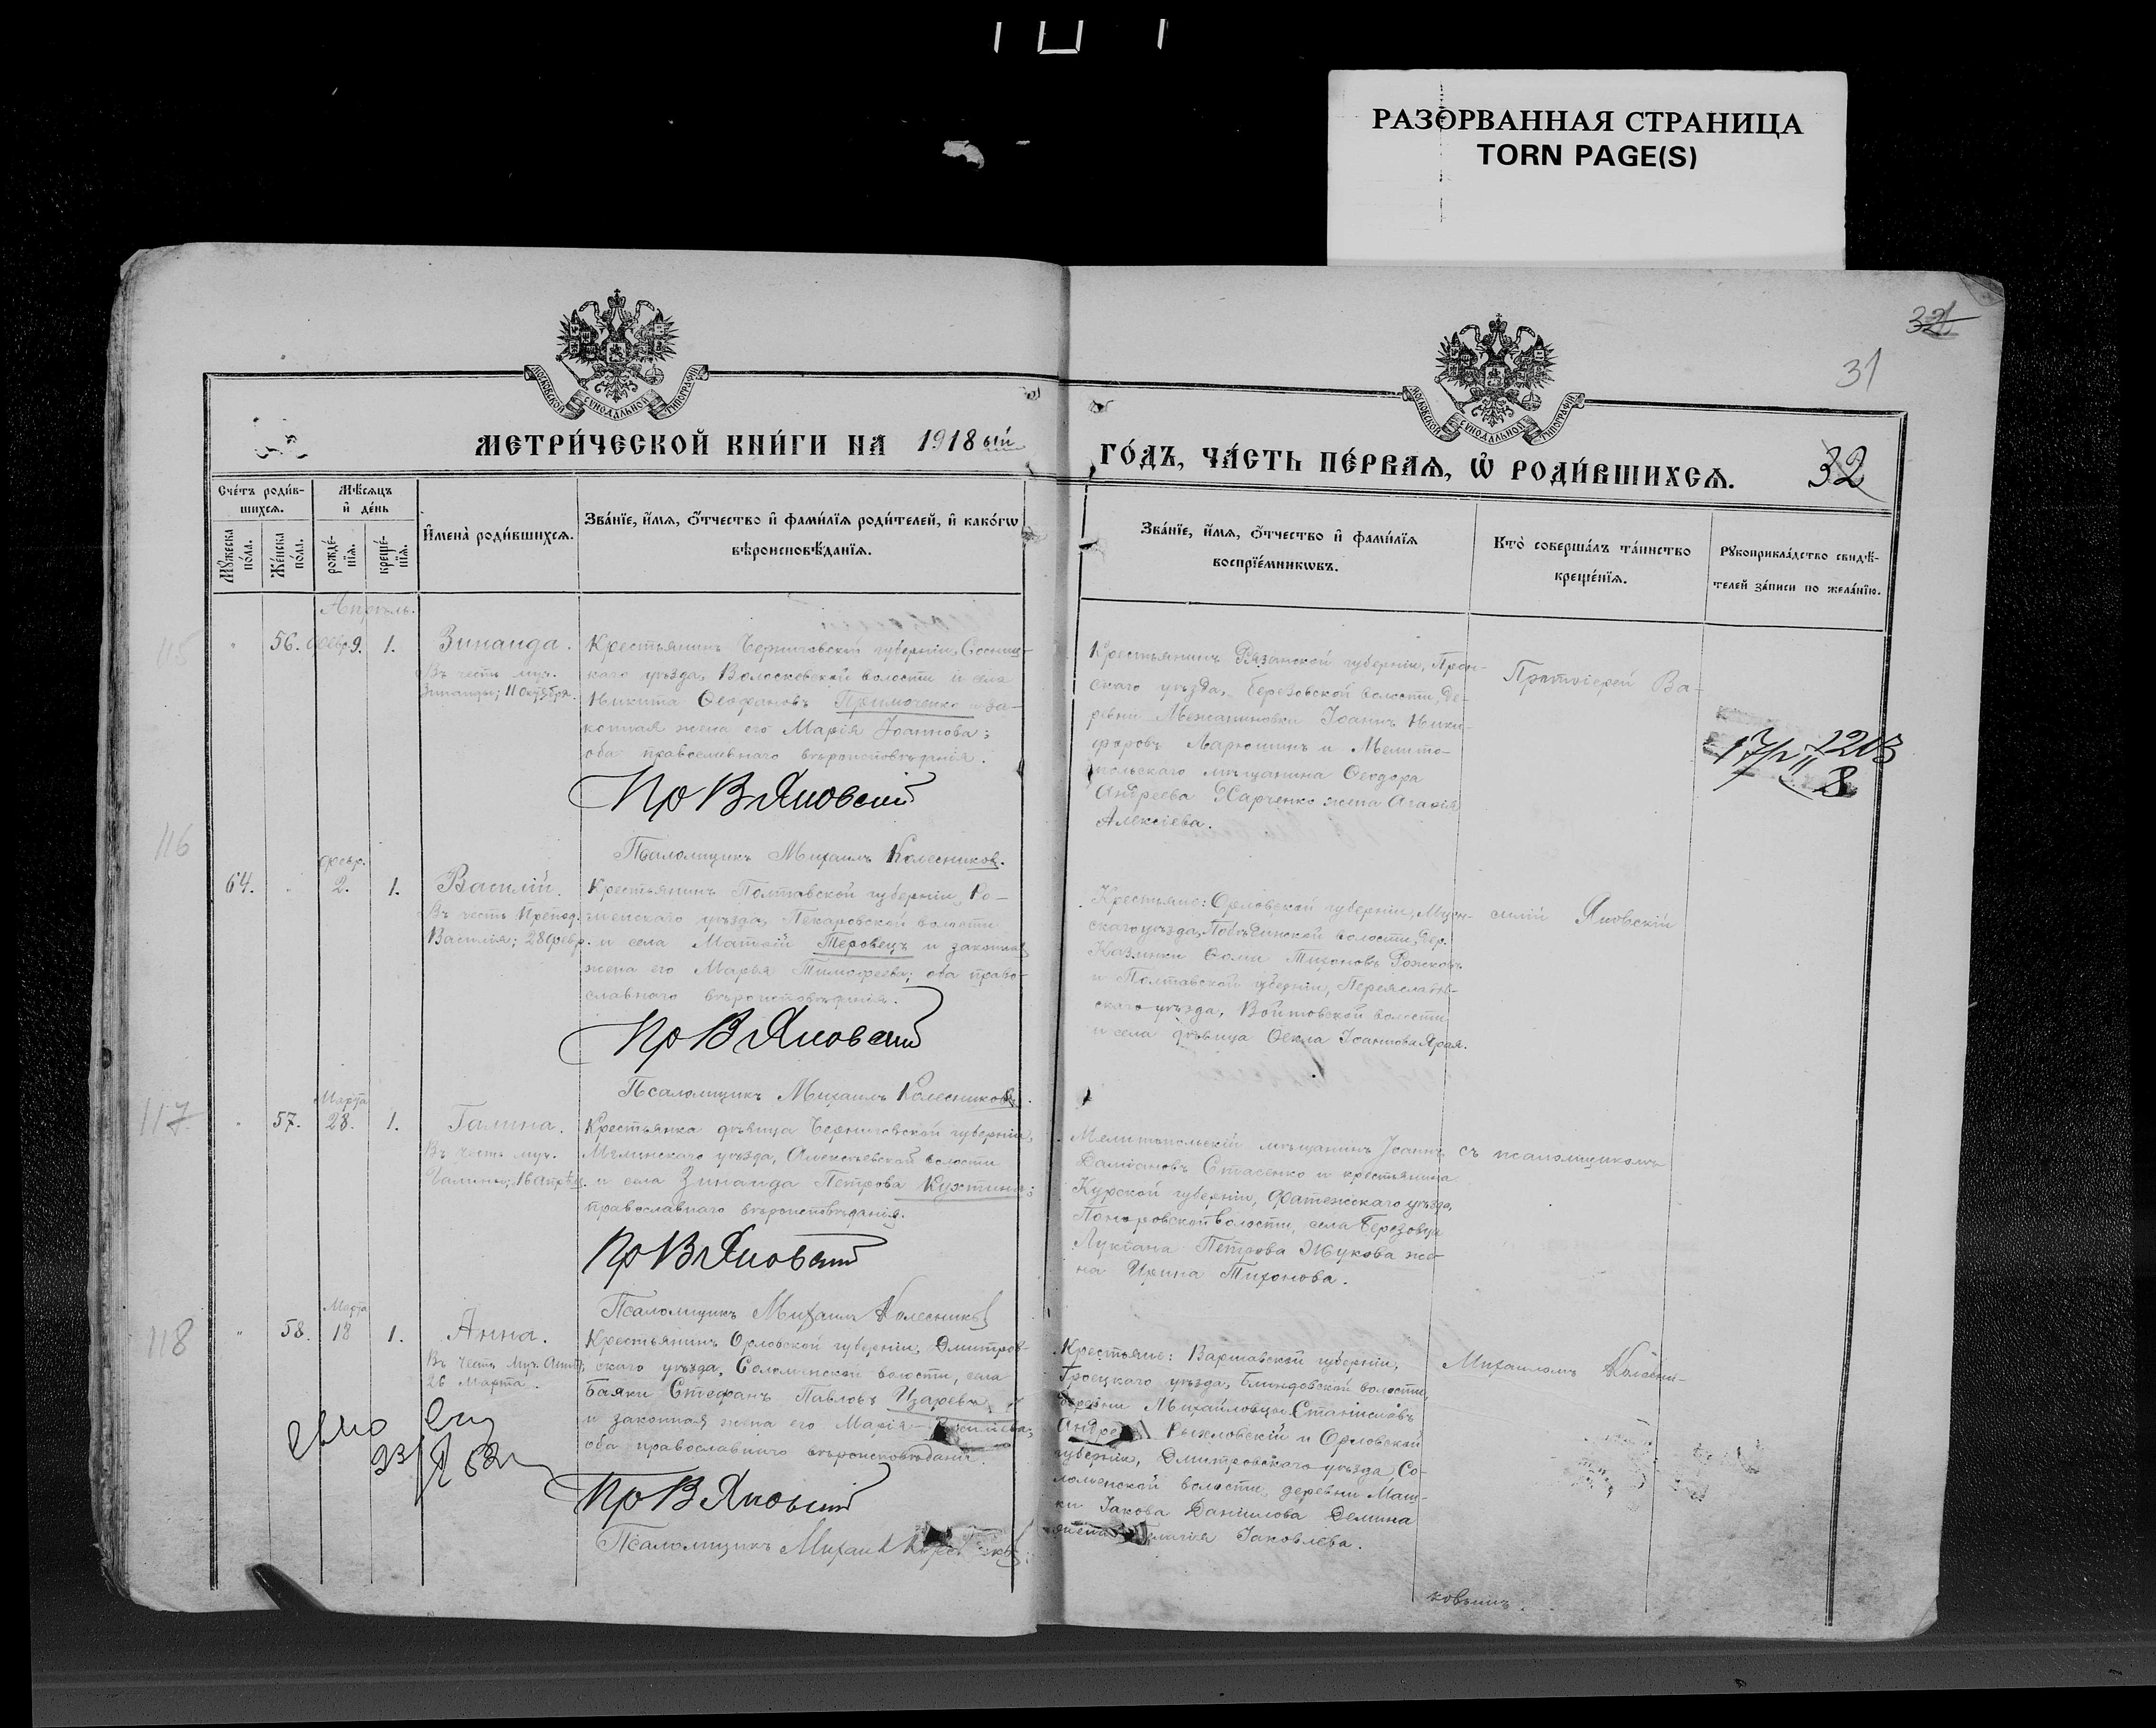 РАЗОРВАННАЯ СТРАНИЦА
TORN PAGE(S)
32
31
МОСКОВСКОЙ СУНОДАЛЬНОЙ ТИПОГРАФІИ
МОСКОВСКОЙ СУНОДАЛЬНОЙ ТИПОГРАФІИ
МЕТРИ́ЧЕСКОЙ КНИ́ГИ НА 1918 ый
ГО́ДЪ, ЧА́СТЬ ПЕ́РВАѦ, Ѿ РОДИ́ВШИХСѦ.
32
Сче́тъ роди́в-
шихсѧ.
Мꙋжеска по́ла.
Же́нска по́ла.
Мѣ́сѧцъ и҆ де́нь
рожде́-нїѧ.
креще́-нїѧ.
И҆мена̀ роди́вшихсѧ.
Зва́нїе, и҆́мѧ, ѻ҆́тчество и҆ фами́лїѧ роди́телей, и҆ како́гѡ
вѣроисповѣ́данїѧ.
Зва́нїе, и҆́мѧ, ѻ҆́тчество и҆ фами́лїѧ
воспрїе́мникѡвъ.
Кто̀ соверша́лъ та́инство
креще́нїѧ.
Рꙋкоприкла́дство свидѣ́-
телей за́писи по жела́нїю.
Апрѣль.
115
56. Февр. 9. 1.
Зинаида.
Въ честь муч.
Зинаиды; 11 Октября.
Крестьянинъ Черниговской губерніи, Сосниц-
каго уѣзда, Волосковской волости и села
Никита Ѳеофановъ Примоченко и за-
конная жена его Марія Іоаннова;
оба православнаго вѣроисповѣданія.
Пр В Яновскій
Псаломщикъ Михаилъ Колесников.
Крестьянинъ Рязанской губерніи, Прон-
скаго уѣзда, Березовской волости, де-
ревни Межаниновки Іоаннъ Ники-
форовъ Ларюшинъ и Мелито-
польскаго мѣщанина Ѳеодора
Андреева Харченко жена Агафія
Алексіева.
Протоіерей Ва-
116
64. Февр. 2. 1.
Василій.
Въ честь Препод.
Василія; 28 февр.
Крестьянинъ Полтавской губерніи, Ро-
менскаго уѣзда, Пекаровской волости
и села Матвій Теровецъ и законная
жена его Марья Тимофеева; оба право-
славнаго вѣроисповѣданія.
Пр В Яновский
Псаломщикъ Михаилъ Колесниковъ.
Крестьяне: Орловской губерніи, Мцен-
скаго уѣзда, волости, дер.
Казинки Ѳома Тихоновъ Рожковъ
и Полтавской губерніи, Переяслав-
скаго уѣзда, Войтовской волости
и села дѣвица Ѳекла Іоаннова Ярая.
силій Яновскій
117
57. Марта 28. 1.
Галина.
Въ честь муч.
Галины; 16 Апрѣля.
Крестьянка дѣвица Черниговской губерніи,
Мглинскаго уѣзда, Алексѣевской волости
и села Зинаида Петрова Кухтина;
православнаго вѣроисповѣданія.
Пр В Яновский
Псаломщикъ Михаилъ Колесников
Мелитопольскій мѣщанинъ Іоаннъ
Даміановъ Стасенко и крестьянина
Курской губерніи, Фатежскаго уѣзда,
волости, села Березовца
Лукіана Петрова Жукова же-
на Ирина Тихонова.
съ псаломщикомъ
118
58. Марта 18 1.
Анна.
Въ честь Муч. Анны;
26 Марта.
Крестьянинъ Орловской губерніи, Дмитров-
скаго уѣзда, Соломинской волости, села
Стефанъ Павловъ Царевъ
и законная жена его Марія
оба православнаго вѣроисповѣданія.
Пр В Яновский
Псаломщикъ Михаил
Крестьяне: Варшавской губерніи,
Гроецкаго уѣзда, волости,
деревни Михайловцы Станиславъ
Рыхловскій и Орловской
губерніи, Дмитровскаго уѣзда, Со-
ломенской волости, деревни Маш-
ки Іакова Даніилова Демина
Іаковлева.
Михаиломъ Колесни-
ковымъ.